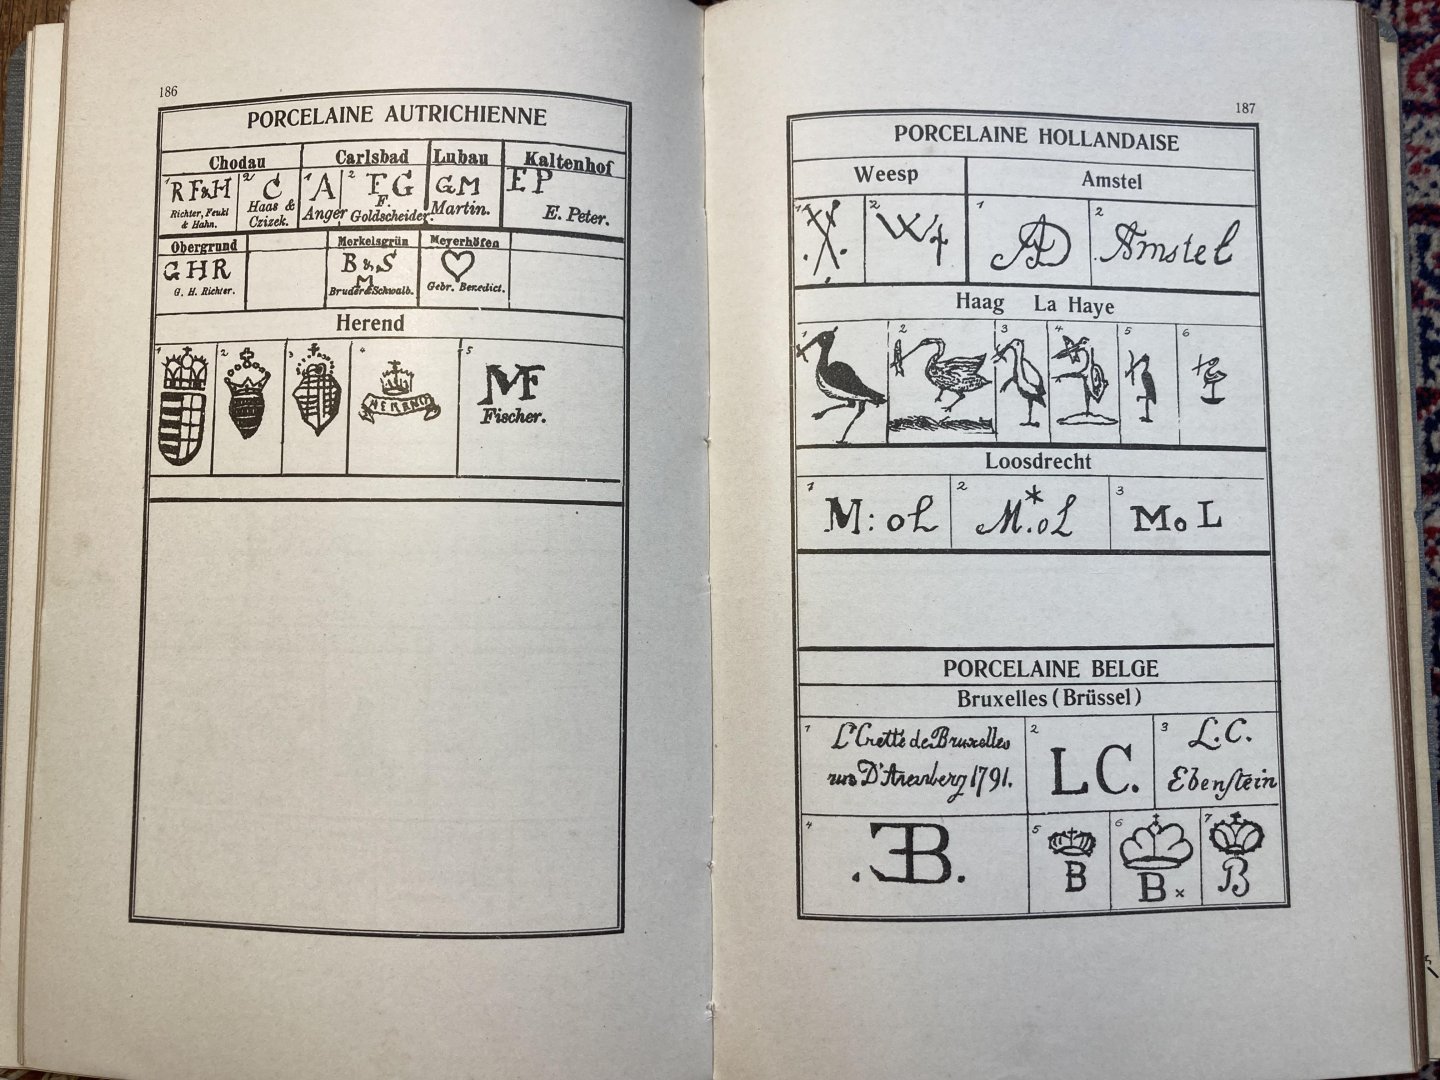 186
PORCELAINE AUTRICHIENNE
Chodau
Carlsbad
Lubau
Kaltenhof
1
R F&H
Richter, Fenkl
& Hahn.
2
C
Haas &
Czizek.
1
A
Anger
2
F G
F.
Goldscheider.
GM
Martin.
E P
E. Peter.
Obergrund
Merkelsgrün
Meyerhöfen
G H R
G. H. Richter.
B & S
M
Bruder & Schwalb.
Gebr. Benedict.
Herend
1
2
3
4
HEREND
5
MF
Fischer.
187
PORCELAINE HOLLANDAISE
Weesp
Amstel
1
2
W
1
AD
2
Amstel
Haag La Haye
1
2
3
4
5
6
Loosdrecht
1
M: oL
2
M.*oL
3
Mo L
PORCELAINE BELGE
Bruxelles (Brüssel)
1
L'Crette de Bruxelles
rue D'Aremberg 1791.
2
LC.
3
L.C.
Ebenſtein
4
.ƎB.
5
B
6
B x
7
B